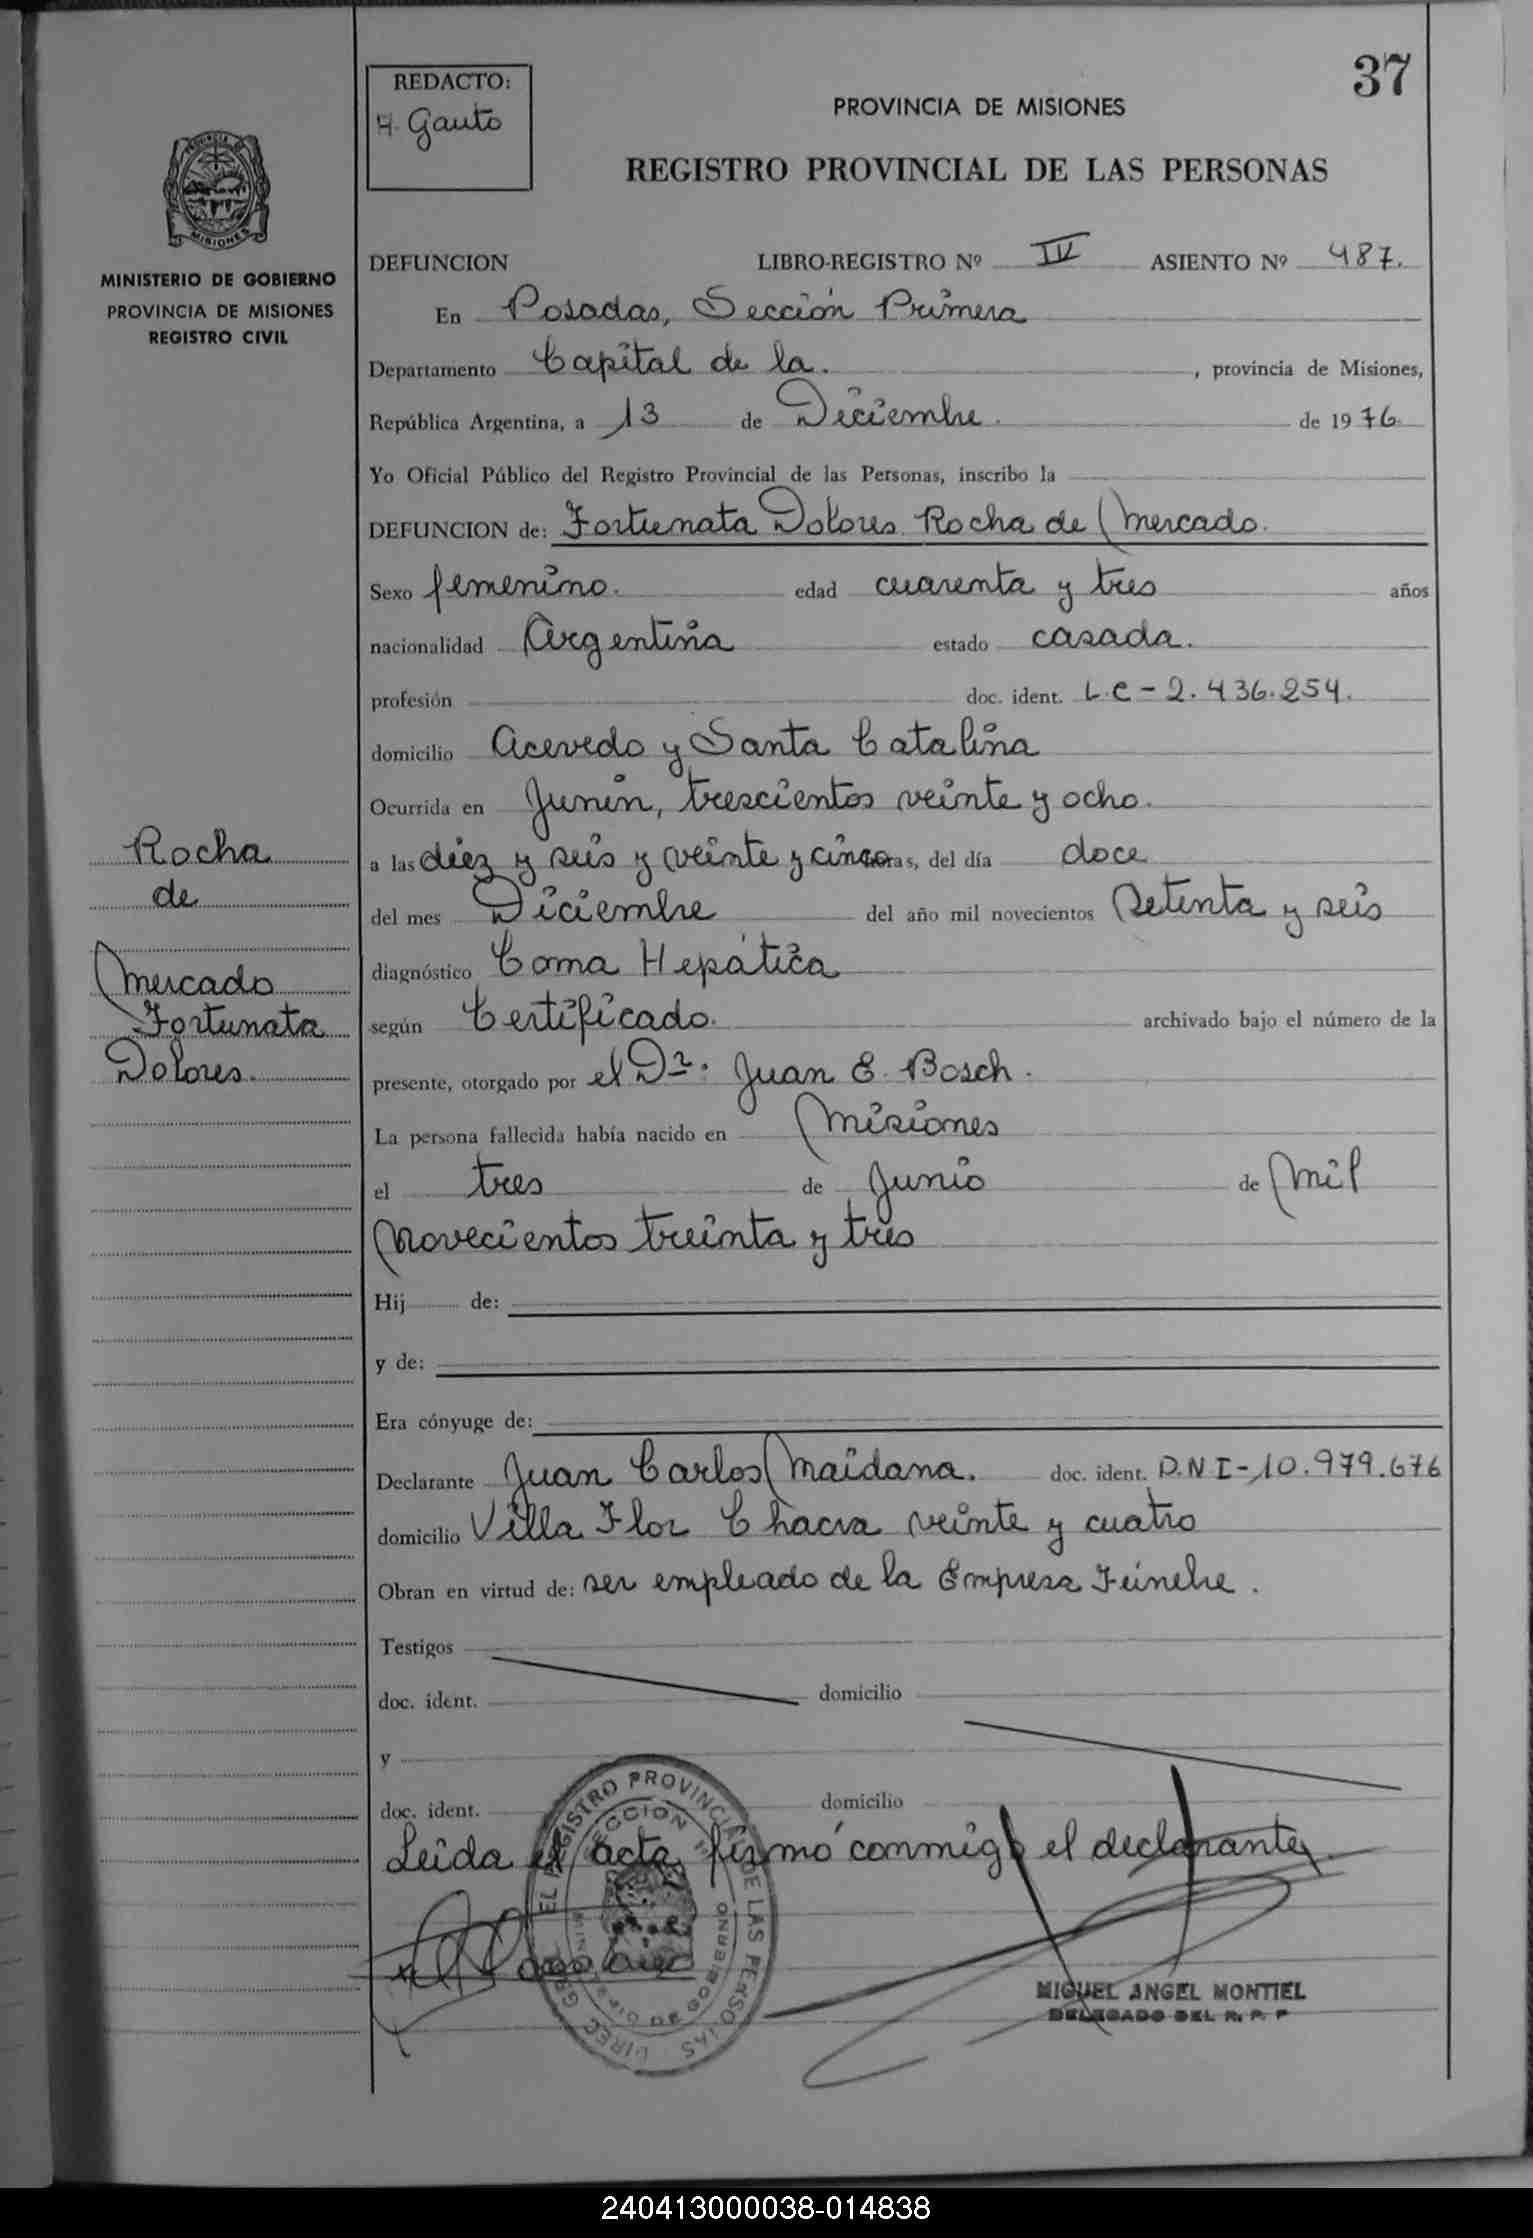 37
REDACTO:
H. Gauto
PROVINCIA DE MISIONES
REGISTRO PROVINCIAL DE LAS PERSONAS
MISIONES
MINISTERIO DE GOBIERNO
PROVINCIA DE MISIONES
REGISTRO CIVIL
DEFUNCION LIBRO-REGISTRO Nº IV ASIENTO Nº 487.
En Posadas, Sección Primera
Departamento Capital de la. , provincia de Misiones,
República Argentina, a 13 de Diciembre. de 1976.
Yo Oficial Público del Registro Provincial de las Personas, inscribo la
DEFUNCION de: Fortunata Dolores Rocha de Mercado.
Sexo femenino. edad cuarenta y tres años
nacionalidad Argentina estado casada.
profesión doc. ident. L.C - 2.436.254.
domicilio Acevedo y Santa Catalina
Ocurrida en Junin, trescientos veinte y ocho.
a las diez y seis y veinte y cinco horas, del día doce
del mes Diciembre del año mil novecientos Setenta y seis
diagnóstico Coma Hepática
según Certificado. archivado bajo el número de la
presente, otorgado por el Dr. Juan E. Bosch.
La persona fallecida había nacido en Misiones
el tres de Junio de Mil
Novecientos treinta y tres
Hij de:
y de:
Era cónyuge de:
Declarante Juan Carlos Maidana. doc. ident. D.N.I - 10.979.676
domicilio Villa Flor Chacra veinte y cuatro
Obran en virtud de: ser empleado de la Empresa Fúnebre.
Testigos
doc. ident. domicilio
y
doc. ident. domicilio
Leida el acta firmó conmigo el declarante,
Rocha
de
Mercado
Fortunata
Dolores.
MIGUEL ANGEL MONTIEL
DELEGADO DEL R. P. P
240413000038-014838